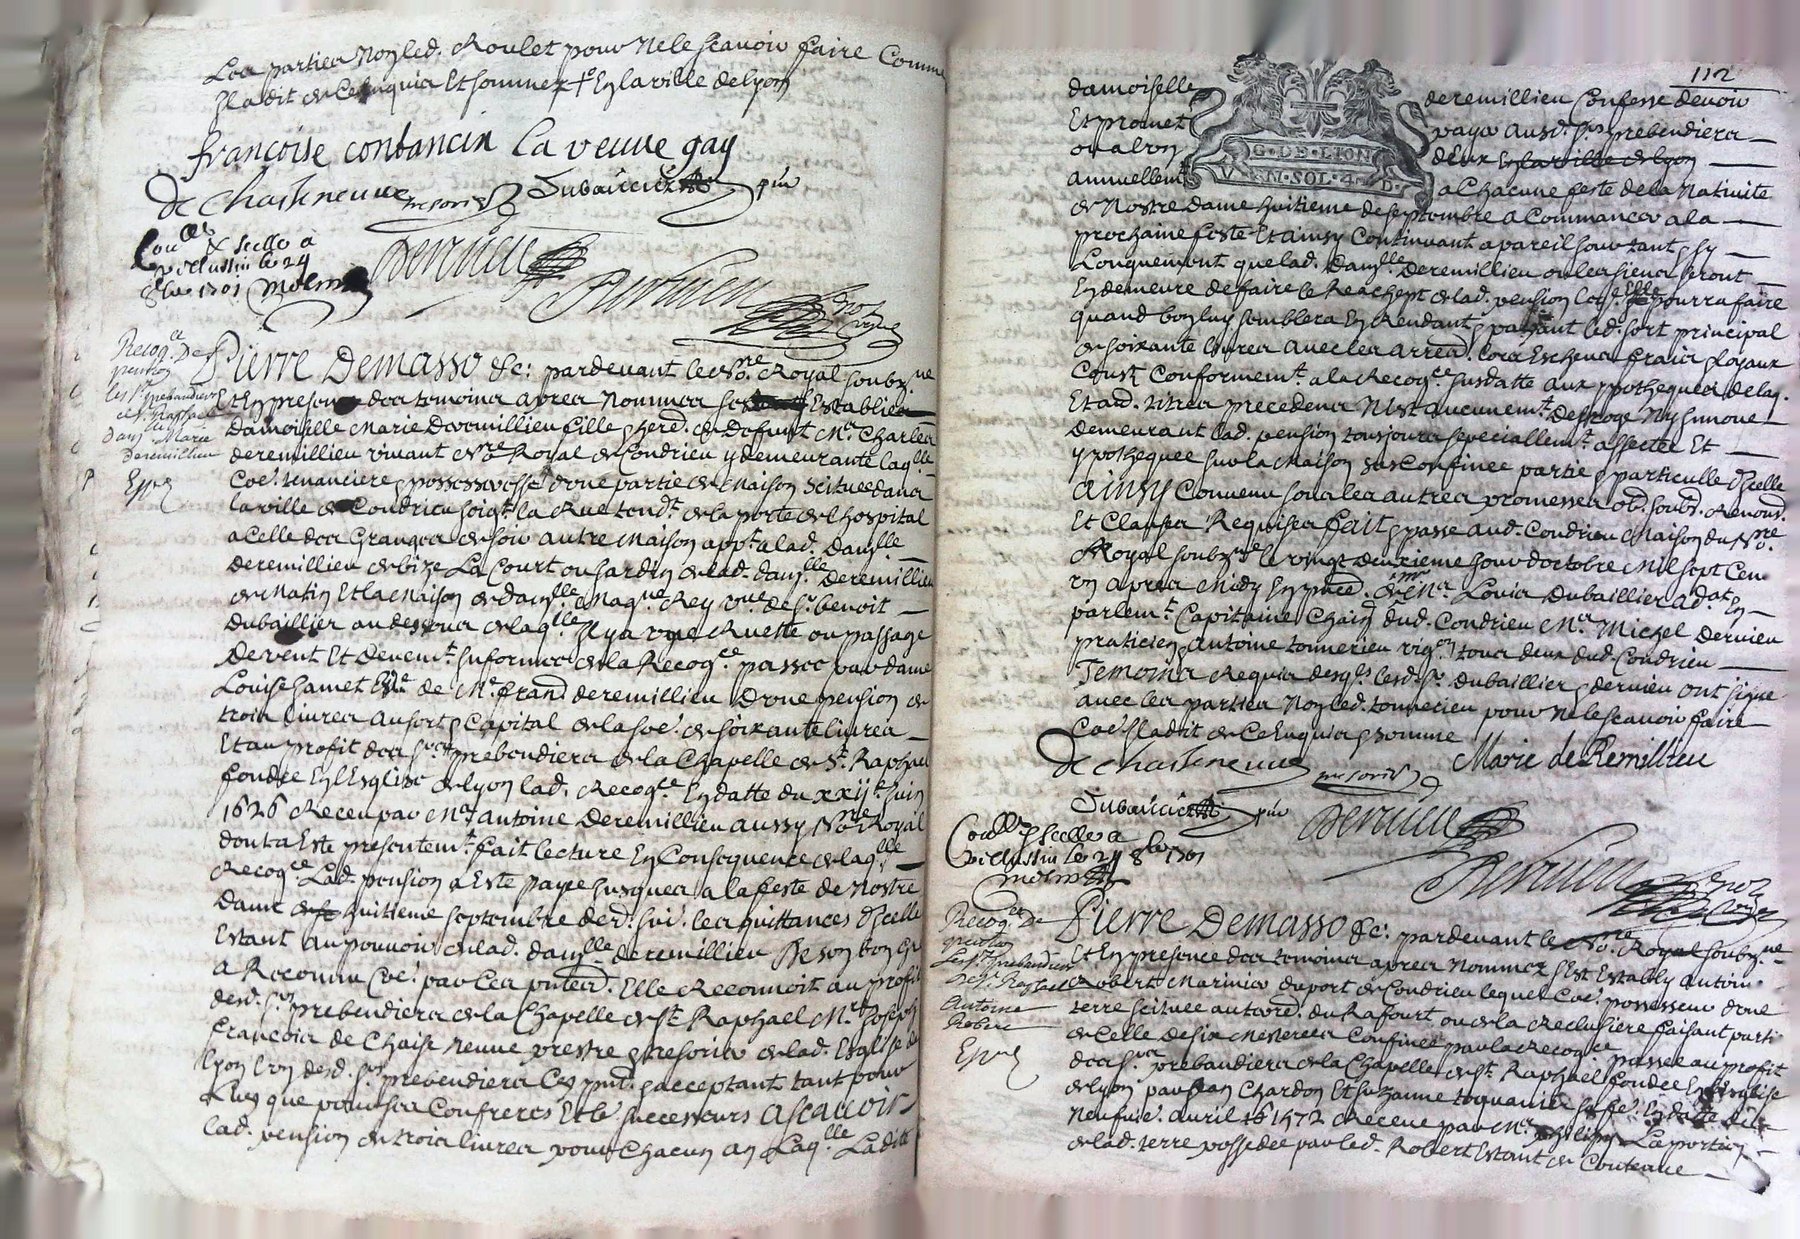 Les parties Non led. Roulet pour ne le scavoir faire Comme
Il a dit de ce enquis Et sommez fe En la ville de lyon
francoise contancin la veuve gay
De Chaisteneuve tresorier Dubaillier pnt
Coullé & scellé a Dervieu
le 24
8bre 1701 Molin Dervieu Nore Royal
Recog.ce De
pension
les Srs prebandiers
de St Raphael
Dam.lle Marie
deremillieu
Exped
Pierre Demasso &c: pardevant le No.re Royal soubz.ne
Et En presence des temoins apres Nommes Establie
Damoiselle Marie Deremillieu fille & hered. de Defunt Me. Charles
deremillieu vivant No.re Royal de Condrieu y demeurante laq.lle
Coe. tenanciere & possesseresse d'une partie de Maison scituee dans
la ville de Condrieu joig.t la Rue tend.t de la porte de lhospital
a celle des Granges de soir autre Maison app.t a lad. Dam.lle
Deremillieu de bize La Court ou Jardin de lad. dam.lle Deremillieu
de Matin Et la Maison de dam.lle Mag.ne Rey v.ve de Sr. benoit
Dubaillier au dessous de laq.lle Il y a une Ruette ou passage
De vent Et Devem.t Informee de la Recog.ce passee par dame
Louise hamet de Me. fran.s deremillieu D'une pension de
trois livres au sort & Capital de la so.e de soixante livres
Et au profit des Srs prebendiers de la Chapelle de St. Raphael
fondee En lEsglise de lyon lad. Recog.ce En datte du xxij.e Juin
1626 Receu par Me. Antoine Deremillieu aussy No.re Royal
dont a Este presentem.t fait lecture En Consequence de laq.lle
Recog.ce Lad. pension a Este payee Jusques a la feste de Nostre
Dame huitieme septembre der.r suiv. les quittances d'Icelle
Estant au pouvoir de lad. dam.lle deremillieu De son bon gré
a Reconnu Coe. par Ces pntes. Elle Reconnoit au profit
desd. Srs prebendiers de la Chapelle de St. Raphael Me. Joseph
francois de Chaise neuve prestre & tresorier de lad. Esglise de
lyon l'un desd. Srs prebendiers Icy pnt. & acceptant tant pour
luy que pour ses Confreres Et le successeurs Ascavoir
lad. pension de trois livres pour Chacun an Laq.lle Ladite
112
damoiselle deremillieu Confesse devoir
Et promet payer ausd. Srs prebendiers
ou a l'un deux En la ville de lyon
annuellem.t a Chacune feste de la Nativité
G·DE·LION
V M·SOL·4·D·
de Nostre Dame huitieme de septembre a Commancer a la
prochaine feste Et ainsy Continuant a pareil jour tant & sy
Longuement que lad. Dam.lle Deremillieu ou les siens seront
En demeure de faire le Reachept de lad. pension Elle pourra faire
quand bon luy semblera En Rendant & payant led. sort principal
de soixante livres avec les arrer. lors Escheus frais & loyaux
Coustz Conformem.t a la Recog.ce susdatte aux ypotheques delaq.
Et aud. titres precedens N'est aucunem.t desroge Ny Innove
Demeurant lad. pension tousjours speciallem.t affectee Et
ypothequee sur la Maison susConfinee partie & particulle d'Icelle
ainsy Convenu sous les autres promesses ob. soub. Renon.
Et Clauses Requises fait & passe aud. Condrieu Maison du No.re
Royal soubz.ne le vingt deuxieme jour d'octobre Mil sept Cen
un apres Midy En pnce. de Me. Louis Dubaillier ad.at En
parlem.t Capitaine Chain dud. Condrieu Me. Michel Dervieu
praticien Antoine tonnerieu vig.on tous deux dud. Condrieu
Temoins Requis desq.ls lesd. Srs Dubaillier & dervieu ont signe
avec les parties Non led. tonnerieu pour ne le scavoir faire
Coe. Il a dit de Ce Enquis & somme
De Chaisteneuve tresorier Marie de Remillieu
Dubaillier pnt Dervieu
Coullé & scellé a
le 24 8bre 1701
Molin Dervieu Nore Royal
Recog.ce De
pention
Les Srs prebandiers
De St. Raphael
Antoine
Robert
Exped
Pierre Demasso &c: pardevant le No.re Royal soubz.ne
Et En presence des temoins apres Nommez S'est Estably Antoin.
Robert Marinier du port de Condrieu lequel Coe. possesseur d'une
terre scituee au terr. du Rafourt ou de la Reclusiere faisant parti
de Celle de six Mesterees Confinee par la Recog.ce passee au profit
des Srs prebandiers de la Chapelle de St. Raphael fondee En lEsglise
de lyon par Jean Chardon Et suzanne sa fe. En datte du
Neufvie. avril 1672 Receue par Me. La portion
de lad. terre possedee par led. Robert Estant de Couteaue